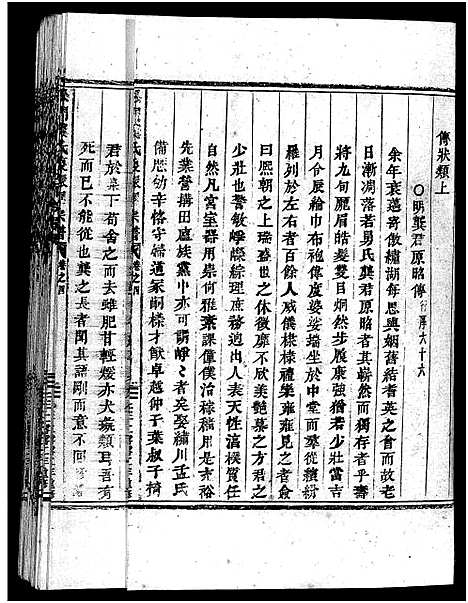 傳狀類上
○明龔君原昭傳 行序六十六
余年衰邁寄傲繡湖每思與姻舊結耆英之會而故老
日漸凋落若易氏龔君原昭者其歸然而獨存者乎壽
將九旬麗眉皓髮雙目炯然步履康強猶若少壯當吉
月令辰綸巾布袍傳度婆娑墻坐於中堂而羣從纘紛
羅列於左右者百餘人威儀棣棣禮樂雍雍見之者僉
曰熙朝之上瑞盛世之休徵靡不懽欣艷慕之方君之
少壯也警敏崢嶸綜理庶務迥出人表天性滈樸質任
自然凡宮室器用桑何雅棄課僮僕治稼穡用是充裕
先業營搆田廬族黨中亦可謂崢崢者矣娶繡川孟氏
備懸幼辛恪守婦道冢嗣樣才猷卓越仲子葉叔子
君於桌下苟舍之而去雖肥甘輕煖亦犬豢類耳吾有
死而已不能從也龔之長者聞其語剛而意不回